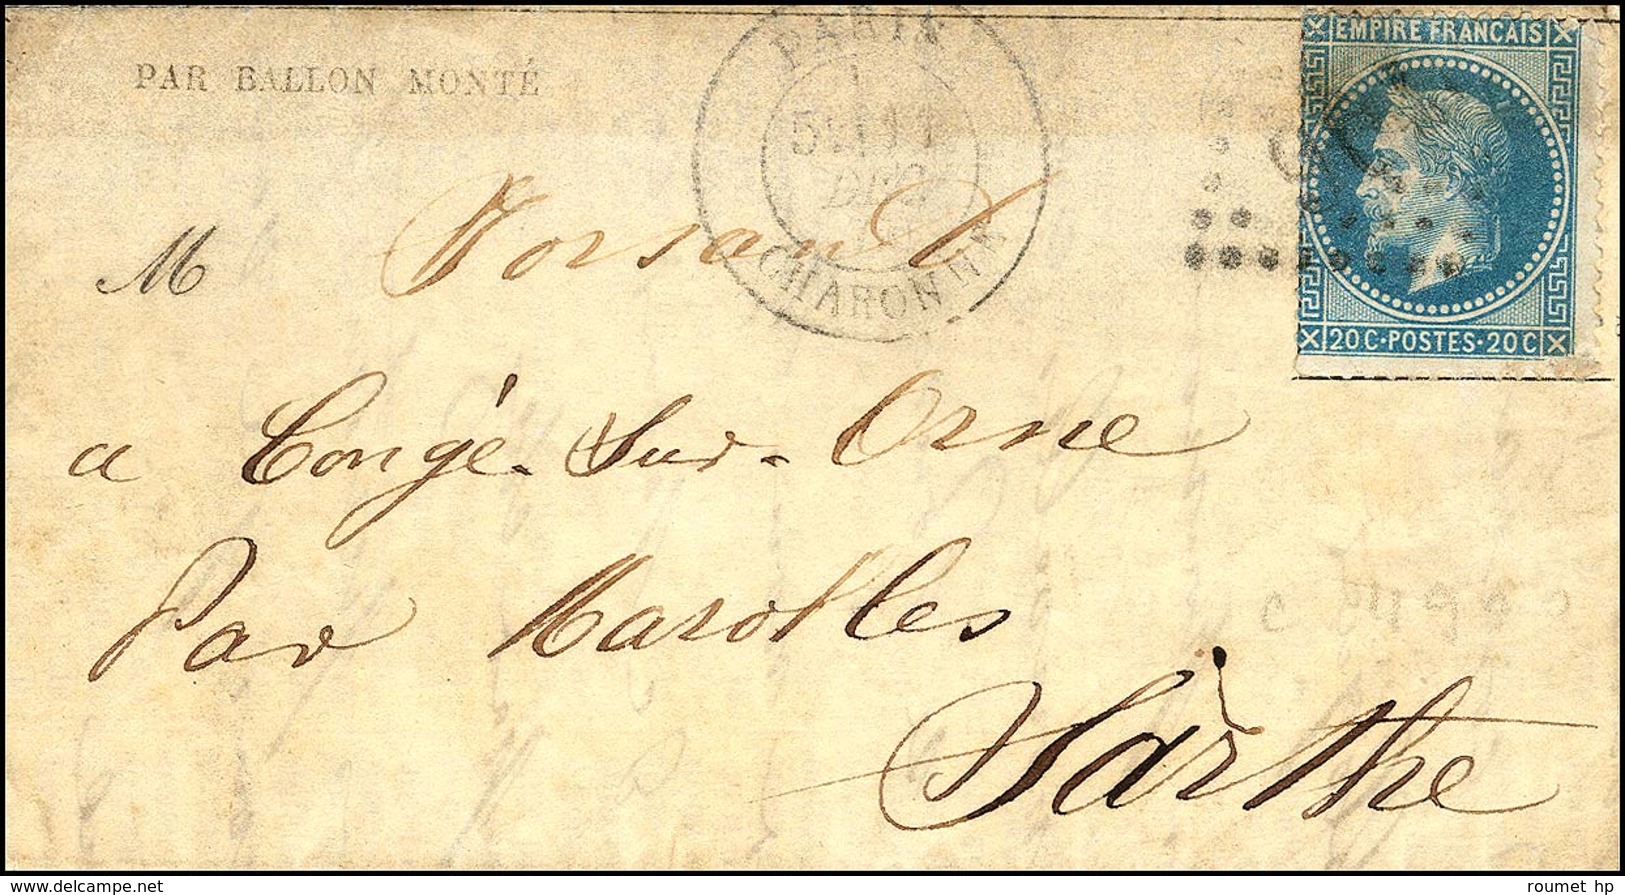 PAR BALLON MONTÉ
PARIS
5E 11
DEC
CHARONNE
EMPIRE FRANÇAIS
20 C · POSTES · 20 C
M Vorsant
a Congé-Sur-Orne
Par Marolles
Sarthe
roumet hp